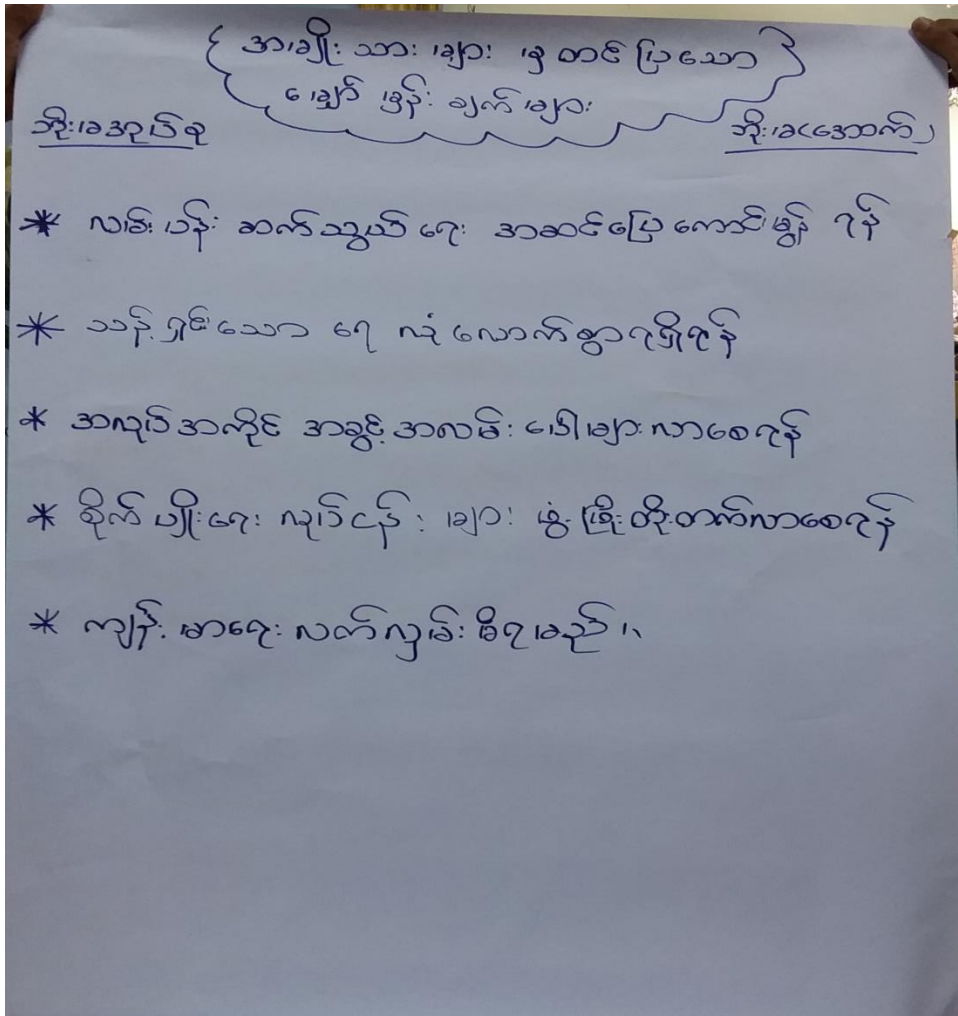 အမျိုးသားများ မှ တင်ပြသော
မျှော်မှန်းချက်များ
ဘိုးမအုပ်စု
ဘိုးမ(အောက်)
* လမ်းပန်းဆက်သွယ်ရေး အဆင်ပြေကောင်းမွန်ရန်
* သန့်ရှင်းသော ရေ လုံလောက်စွာရရှိရန်
* အလုပ်အကိုင် အခွင့်အလမ်း ပေါများလာစေရန်
* စိုက်ပျိုးရေးလုပ်ငန်းများ ဖွံ့ဖြိုးတိုးတက်လာစေရန်
* ကျန်းမာရေးလက်လှမ်းမီရမည်။